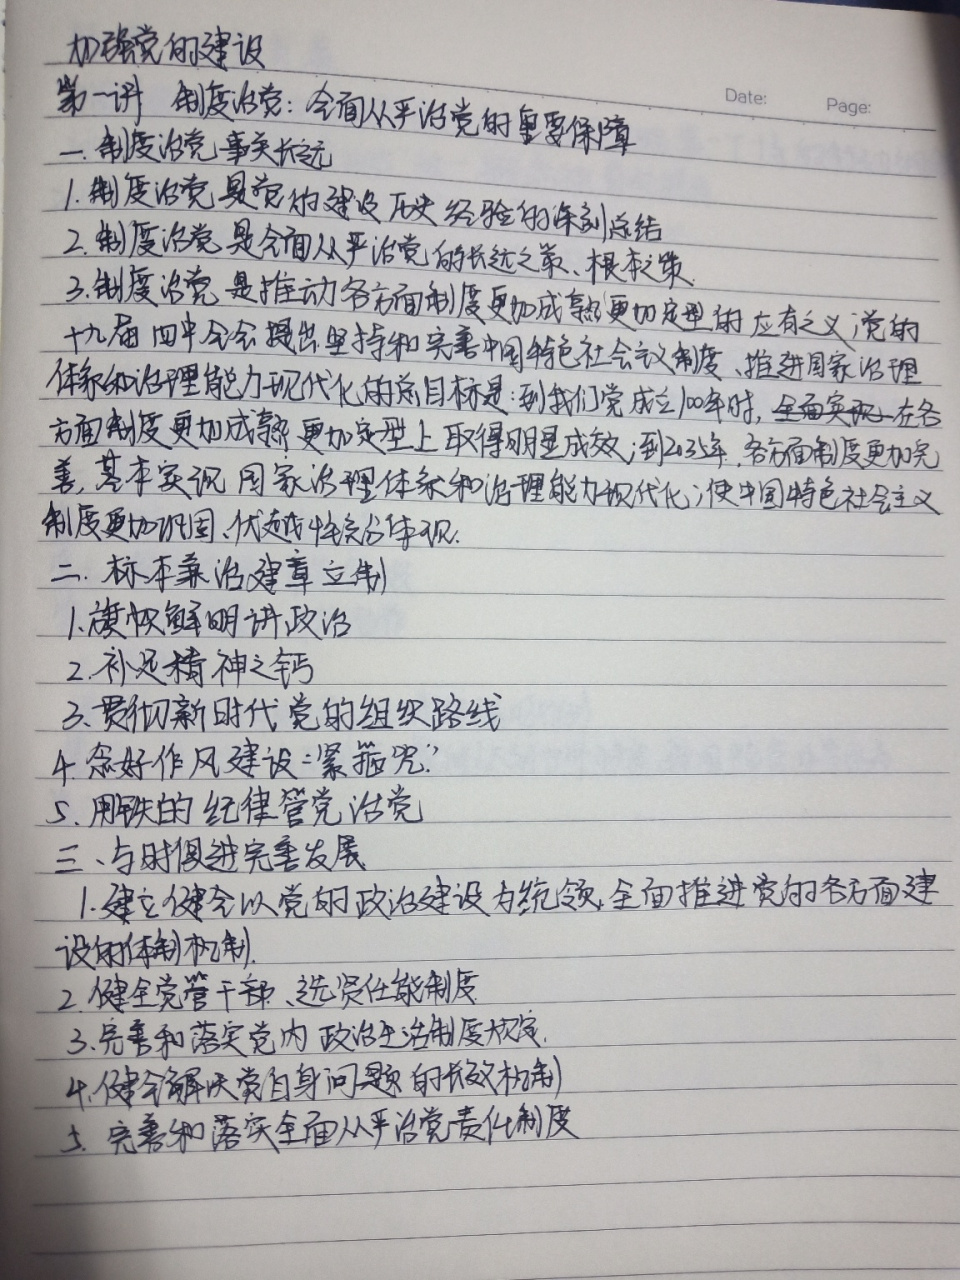 加强党的建设
Date: Page:
第一讲 制度治党：全面从严治党的重要保障
一、制度治党事关长远
1.制度治党是党的建设历史经验的深刻总结
2.制度治党是全面从严治党的长远之策、根本之策.
3.制度治党是推动各方面制度更加成熟更加定型的应有之义；党的
十九届四中全会提出坚持和完善中国特色社会主义制度、推进国家治理
体系和治理能力现代化的总目标是：到我们党成立100年时，全面实现在各
方面制度更加成熟更加定型上取得明显成效；到2035年，各方面制度更加完
善，基本实现国家治理体系和治理能力现代化；使中国特色社会主义
制度更加巩固、优越性充分体现.
二、标本兼治建章立制
1.旗帜鲜明讲政治
2.补足精神之钙
3.贯彻新时代党的组织路线
4.念好作风建设“紧箍咒”
5.用铁的纪律管党治党
三、与时俱进完善发展
1.建立健全以党的政治建设为统领，全面推进党的各方面建
设的体制机制.
2.健全党管干部、选贤任能制度
3.完善和落实党内政治生活制度规定.
4.健全解决党自身问题的长效机制
5.完善和落实全面从严治党责任制度